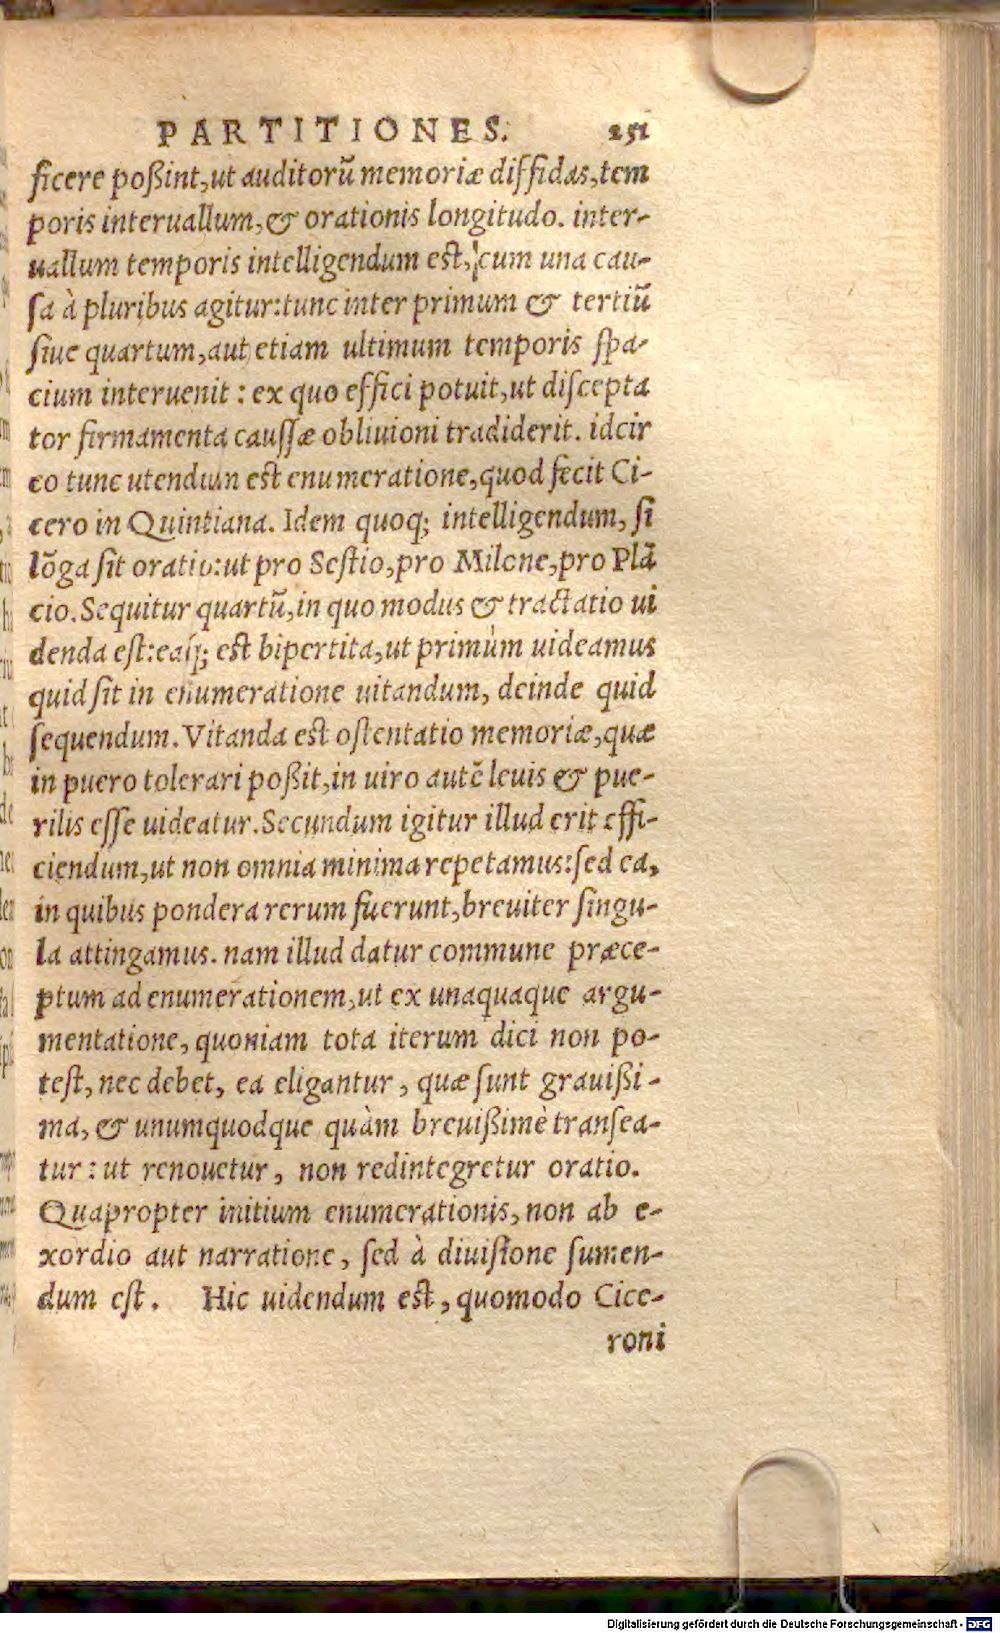 PARTITIONES. 251
ficere poßint, ut auditorũ memoriæ diffidas, tem
poris interuallum, & orationis longitudo. inter-
uallum temporis intelligendum est, cum una cau-
sa à pluribus agitur: tunc inter primum & tertiũ
siue quartum, aut etiam ultimum temporis spa-
cium interuenit: ex quo effici potuit, ut discepta
tor firmamenta caussæ obliuioni tradiderit. idcir
co tunc utendum est enumeratione, quod fecit Ci-
cero in Quintiana. Idem quoq; intelligendum, si
lõga sit oratio: ut pro Sestio, pro Milone, pro Plã
cio. Sequitur quartũ, in quo modus & tractatio ui
denda est: easq; est bipertita, ut primùm uideamus
quid sit in enumeratione uitandum, deinde quid
sequendum. Vitanda est ostentatio memoriæ, quæ
in puero tolerari poßit, in uiro autẽ leuis & pue-
rilis esse uideatur. Secundum igitur illud erit effi-
ciendum, ut non omnia minima repetamus: sed ea,
in quibus pondera rerum fuerunt, breuiter singu-
la attingamus. nam illud datur commune præce-
ptum ad enumerationem, ut ex unaquaque argu-
mentatione, quoniam tota iterum dici non po-
test, nec debet, ea eligantur, quæ sunt grauißi-
ma, & unumquodque quàm breuißimè transea-
tur: ut renouetur, non redintegretur oratio.
Quapropter initium enumerationis, non ab e-
xordio aut narratione, sed à diuisione sumen-
dum est. Hic uidendum est, quomodo Cice-
roni
Digitalisierung gefördert durch die Deutsche Forschungsgemeinschaft - DFG